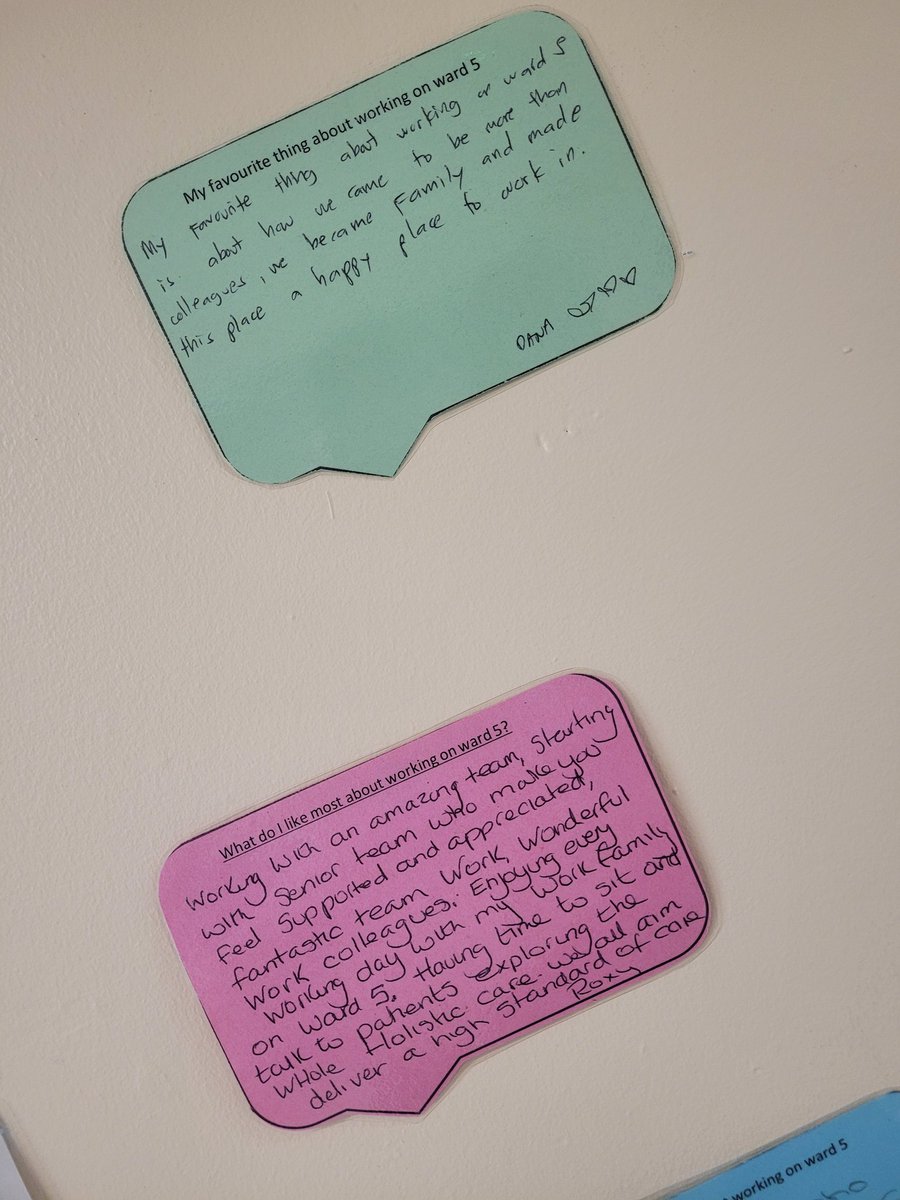 My favourite thing about working on ward 5
My Favourite thing about working on ward 5
is about how we came to be more than
colleagues, we became Family and made
this place a happy place to work in.
DANA
What do I like most about working on ward 5?
Working with an amazing team, starting
with senior team who make you
feel supported and appreciated,
fantastic team work, wonderful
work colleagues. Enjoying every
working day with my work Family
on ward 5. Having time to sit and
talk to patients exploring the
whole Holistic care. we all aim
deliver a high standard of care
Roxy
working on ward 5